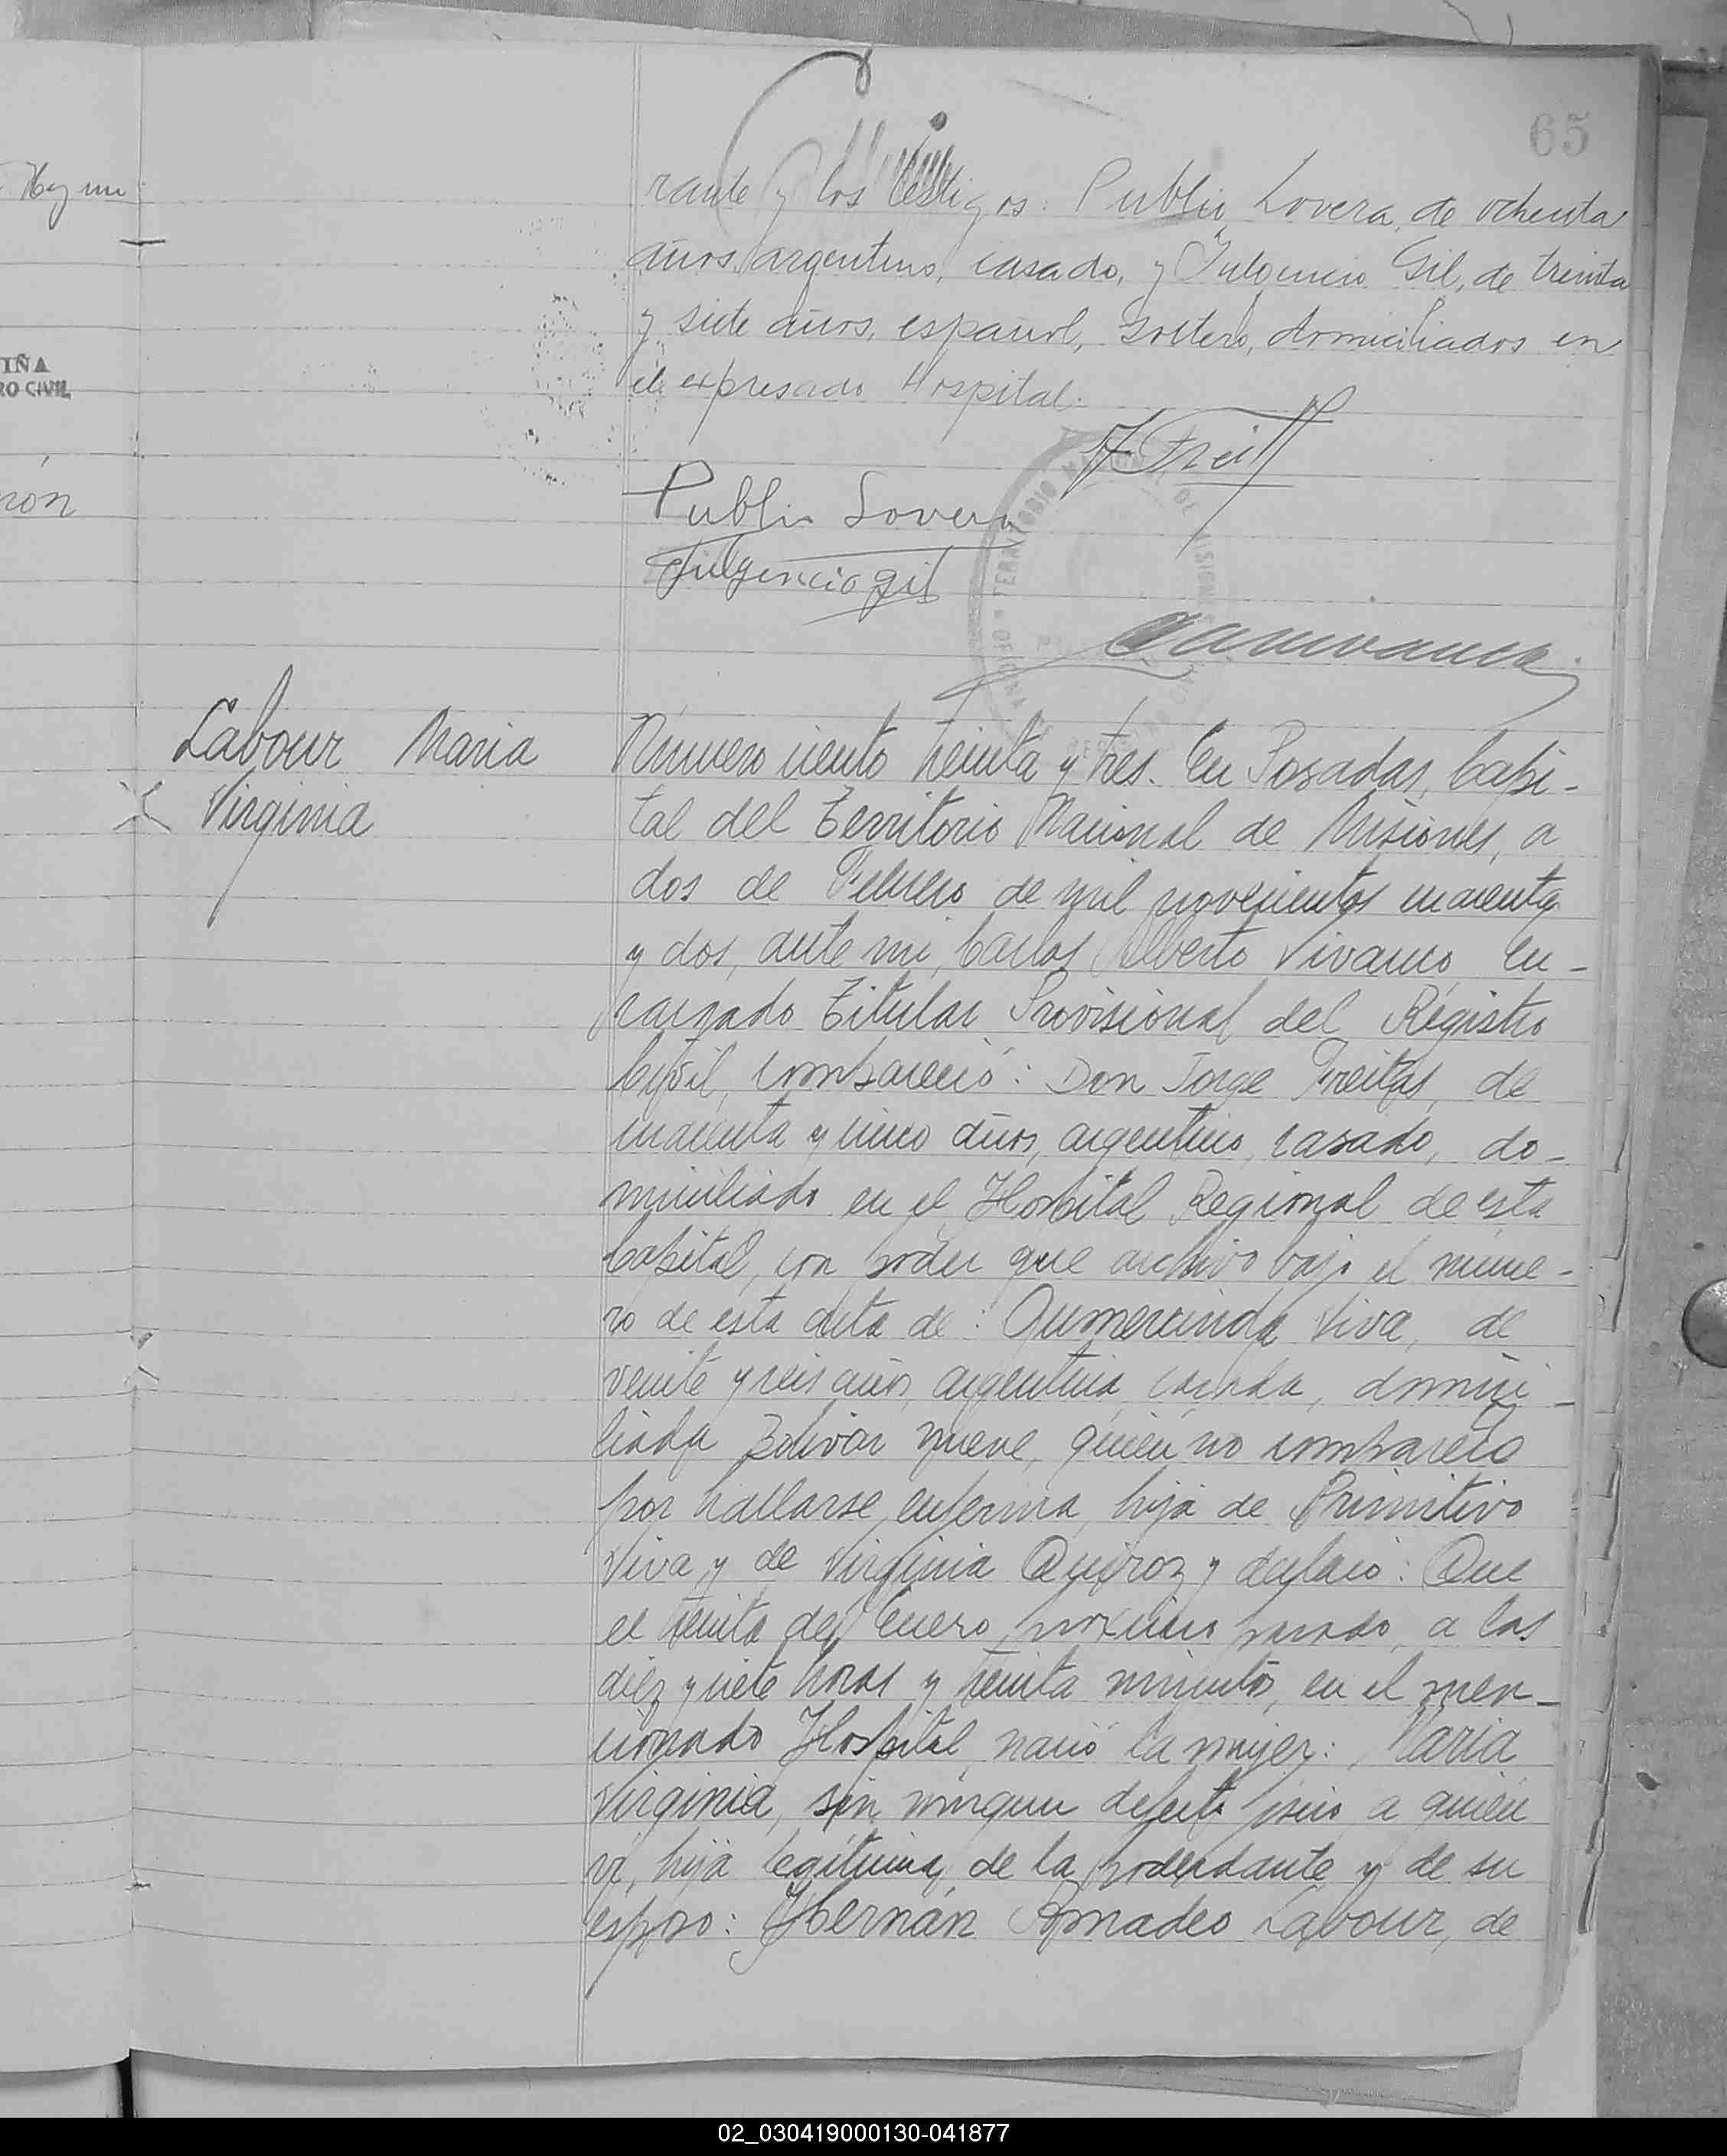 65
rante y los testigos: Publio Lovera, de ochenta
años, argentino, casado, y Fulgencio Gil, de treinta
y siete años, español, soltero, domiciliados en
el expresado Hospital.
IÑA
RO CIVIL
rón
Publio Lovera
Fulgencio Gil
TERRITORIO DE MISIONES
Labour Maria
Virginia
Número ciento treinta y tres. En Posadas, Capi-
tal del Territorio Nacional de Misiones, a
dos de Febrero de mil novecientos cuarenta
y dos, ante mi, Carlos Alberto Vivanco, En-
cargado Titular Provisional del Registro
Civil, compareció: Don Jorge Freitas, de
cuarenta y cinco años, argentino, casado, do-
miciliado en el Hospital Regional de esta
Capital, con poder que archivo bajo el núme-
ro de esta acta de: Gumercinda Viva, de
veinte y seis años, argentina, casada, domici-
liada Bolivar nueve, quién no compareció
por hallarse enferma, hija de Primitivo
Viva y de Virginia Quiroz y declaró: Que
el treinta de Enero próximo pasado, a las
diez y siete horas y treinta minutos, en el men-
cionado Hospital, nació la mujer: Maria
Virginia, sin ningun defecto fisico a quién
ví, hija legítima de la poderdante y de su
esposo: Hernán Amadeo Labour, de
02_030419000130-041877